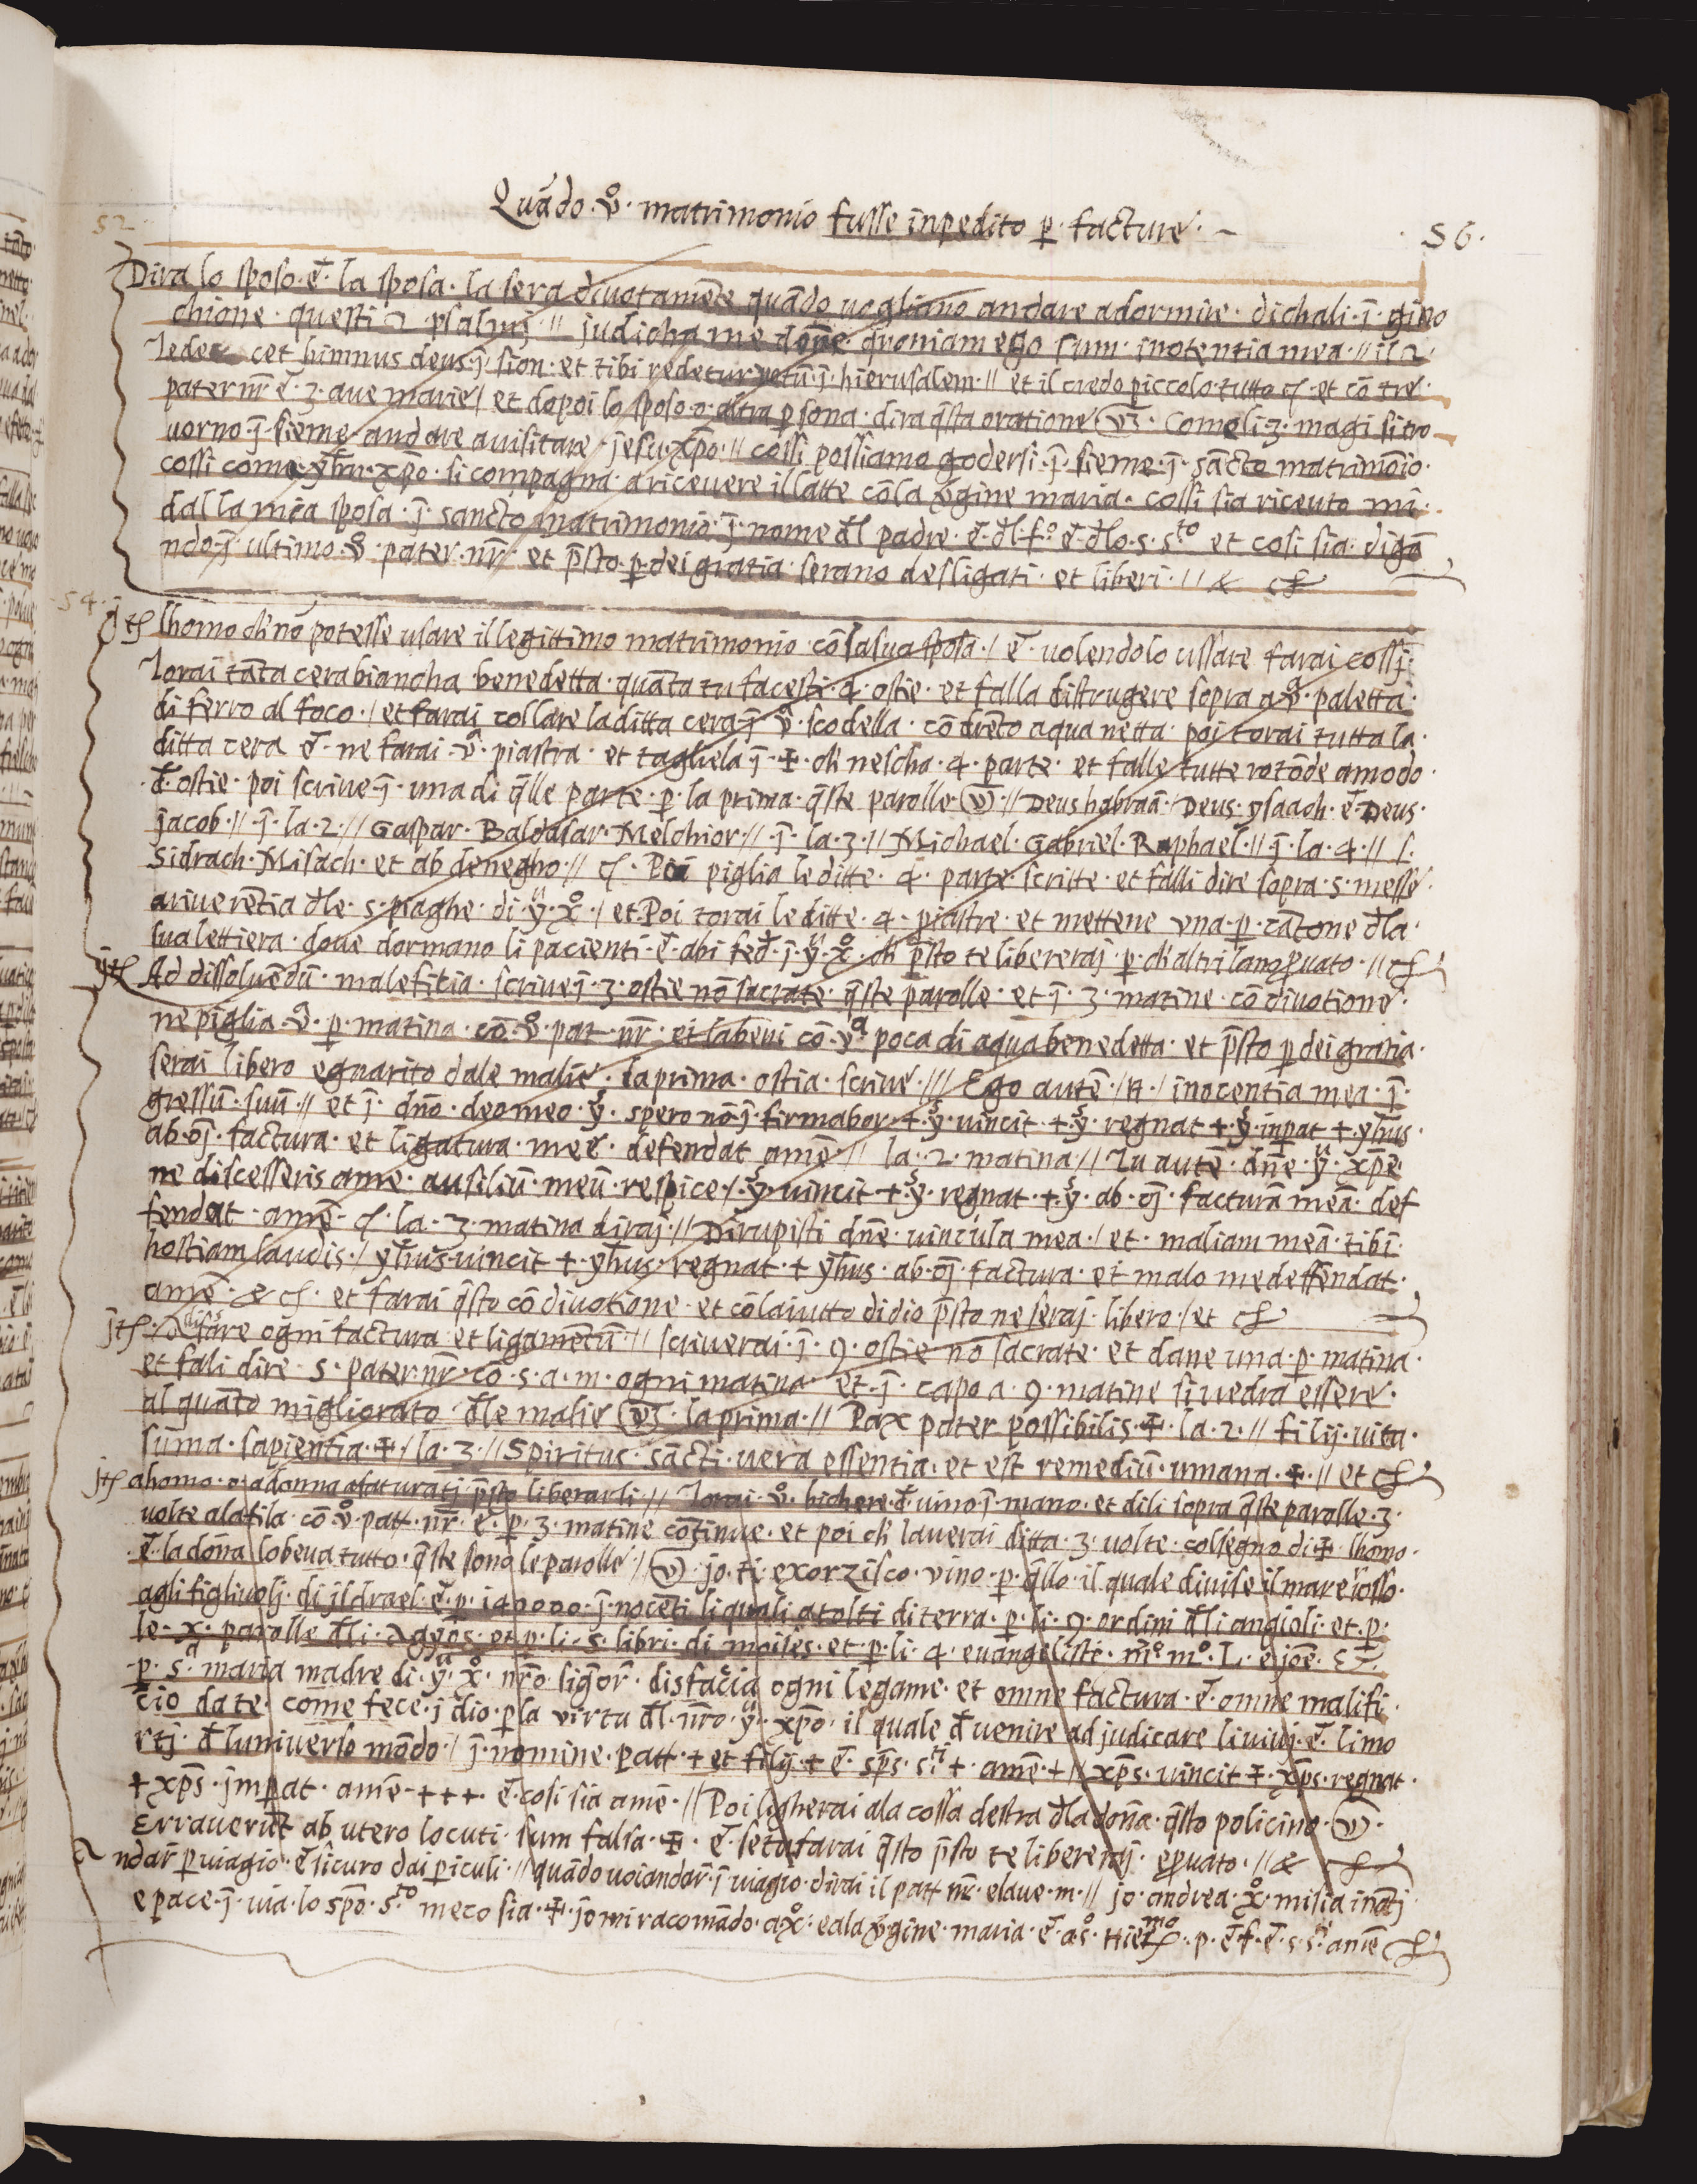 Quãdo · ů · matrimonio fusse inpedito p̱ · facture · ~
52
· 56 ·
Dira lo sposo · e͂ · la sposa · la sera divotamẽte quãdo vogliano andare adormire · dichali · ĩ · gino
chione · questi 2 · psalmj · // judicha me dom̃e · quoniam ego sum · inotentia mea · // il 2 ·
Tedec cet himnus deus · ĩ · sion · et tibi redetur votũ · ĩ · hierusalem · // et il credo piccolo tutto et cõ tre ·
pater nr̃ e͂ · 3 · ave marie / et dopoi lo sposo · o · altra p̱sona · dira q̃sta oratione (v3) · Come li · 3 · magi si tro
vorno · ĩ · sieme · andare avisitare · jesu · xp̃o · // cossi possiamo godersi · ĩ · sieme · ĩ · sãcto matrimõio ·
cossi come · yh̃u · xp̃o · si compagna · a ricevere il latte cõ la v̊gine maria · cossi sia riceuto mi ·
dalla mia sposa · ĩ · sancto matrimonio · ĩ · nome d̃l padre · e͂ · d̃l · f° · e͂ · d̃lo · s · s^to et cosi sia · digã
ndo · ĩ · ultimo · ů · pater · nr̃ · et p̃sto · p̱ · dei gratia · serano desligati · et liberi · // &
54 ·
jtȝ lhomo ch̃ nõ potesse usare il legittimo matrimonio · cõ la sua sposa · / e͂ · volendolo ussare farai cossj ·
Torai tãta cera biancha · benedetta · quãta tu facesti · 4 · ostie · et falla distrugere sopra a v̊ · paletta ·
di ferro al foco · / et farai collare la ditta cera · ĩ · v̊ · scodella · cõ drẽto aqua netta · poi torai tutta la ·
ditta cera e͂ · ne farai · v̊ · piastra · et tagliela ĩ · ✠ · ch̃ nescha · 4 · parte · et falle tutte rotõde amodo ·
· d̃ · ostie · poi scrive · ĩ · una di q̃lle parte · p̱ · la prima · q̃ste parolle (v) · // Deus habraã · / Deus · ysaach · e͂ · Deus ·
jacob · // · ĩ · la · 2 · // Gaspar · Baldasar · Melchior · // · ĩ · la · 3 · // Michael · Gabriel · Raphael · // ĩ · la · 4 · //
Sidrach · Misach · et ab denegho · // · Poi piglia le ditte · 4 · parte · scritte · et falli dire sopra · 5 · messe ·
a riverẽtia d̃le · 5 · piaghe · di · ÿ · x̊ · / et Poi torai le ditte · 4 · piastre · et mettene una · p̱ · cãtone d̃la ·
sua lettiera · dove dormano li pacienti · e͂ · abi fed̃ · ĩ · ÿ · x̊ · ch̃ p̃sto te libereraj · p̱ · ch̃ altri lano p̱vato · //
jtȝ Ad dissoluẽdũ · malefitia · scrive ĩ · 3 · ostie nõ sacrate · q̃ste parolle · et ĩ · 3 · matine · cõ divotione ·
ne piglia · v̊ · p̱ · matina · cõ · ů · pat · nr̃ · et la bevi cõ · v^a poca di aqua benedetta · et p̃sto p̱ dei gratia ·
serai libero e guarito dale malie · la prima · ostia · scrive · /// Ego autẽ · / H · / inocentia mea · ĩ ·
gressũ · suũ · // et ĩ · dño · deo meo · ẙ · spero nõ · ĩ · firmabor · + · ẙ · vincit · + · ẙ · regnat + · ẙ · inp̱at + · yh̃us ·
ab · oj̃ · factura · et ligatura · mee · defendat amẽ · // la · 2 · matina · // Tu autẽ · dñe · ÿ · xp̃e ·
ne discesseris a me · ausiliũ · meũ · respice · / · ẙ · vincit + · ẙ · regnat · + · ẙ · ab · oj̃ · facturã meã · def
fendat · amẽ · la · 3 · matina diraj · // Dirupisti dñe · vincula mea · / et · maliam meã · tibi ·
hostiam laudis · / yh̃us · vincit + · yh̃us · regnat · + yh̃us · ab · oj̃ · factura · et malo me deffendat ·
amẽ · & · et farai q̃sto cõ divotione · et cõ laiutto di dio p̃sto ne seraj · libero · / et
jtȝ · A disfare ogni factura et ligamẽtũ · // scriverai · ĩ · 9 · ostie nõ sacrate · et dane una · p̱ · matina ·
et fali dire · 5 · pater nr̃ · cõ · 5 · a · m · ogni matina · et · ĩ · capo a · 9 · matine si vedra essere ·
al quãto migliorato d̃le malie (v3) · la prima · // Pax pater possibilis · ✠ · la · 2 · // filij · vita ·
suma · sapientia · ✠ · / la · 3 · // Spiritus · sãcti · vera essentia · et est remediũ · umana · ✠ · // et
jtȝ a homo · o · a donna afaturatj p̃sto liberarli // Torai · ů · bichere · d̃ · vino ĩ · mano · et dili sopra q̃ste parolle · 3 ·
volte ala fila · cõ · ů · patt · nr̃ · e͂ · p̱ · 3 · matine cõtinue · et poi ch̃ laverai ditta · 3 · volte · col segno di ✠ · lhomo ·
· e͂ · la dõna lo beva tutto · q̃ste sono le parolle · / (v) · jo · ti · exorzisco · vino · p̱ · q̃llo · il quale divise il mare rosso ·
agli figliuolj · di jsdrael · e͂ · p̱ · 140000 · ĩ · nocẽti li quali a tolti di terra · p̱ · li · 9 · ordini d̃li angioli · et · p̱ ·
le · x · parolle d̃li · Agyos · et p̱ · li · 5 · libri · di moises · et · p̱ · li · 4 · evangeliste · m̃° m° · L · e jõe ·
p̱ · s^a maria madre di · ÿ · x̊ · nr̃o · signor̃ · disfacia ogni legame · et omne factura · e͂ · omne malifi ·
cio da te · come fece · ĩ dio · p̱ la virtu d̃l · nr̃o · ÿ · xp̃o · il quale d̃ venire ad judicare li vivj · e͂ · li mo
rtj · d̃ luniverso mõdo · / ĩ · nomine · patt · + et filij · + e͂ · sp̃s · s^ti + · amẽ · + // xp̃s · vincit ✠ · xp̃s · regnat ·
+ xp̃s · imp̱at · amẽ · + + + · e͂ · cosi sia amẽ · // Poi ligherai ala cossa destra d̃la doña · q̃sto policino · (v) ·
Erraverũt ab utero locuti · sum falsa · ✠ · e͂ · se tu farai q̃sto p̃sto te libereraj · e p̱vato · // &
A ndar̃ p̱ viagio · e͂ sicuro dai p̱iculi · // quãdo voi andar̃ · ĩ viagio · dirai il patt nr̃ · e lave · m · // jo · andrea · x̊ · mi sia inãtj
e pace · ĩ · via · lo sp̃o · s^to meco sia · ✠ · jo mi racomãdo · a x̊ · e ala v̊gine · maria · e͂ · a s̊ · Hier^mo · p · e͂ · f · e͂ · s · s · amẽ